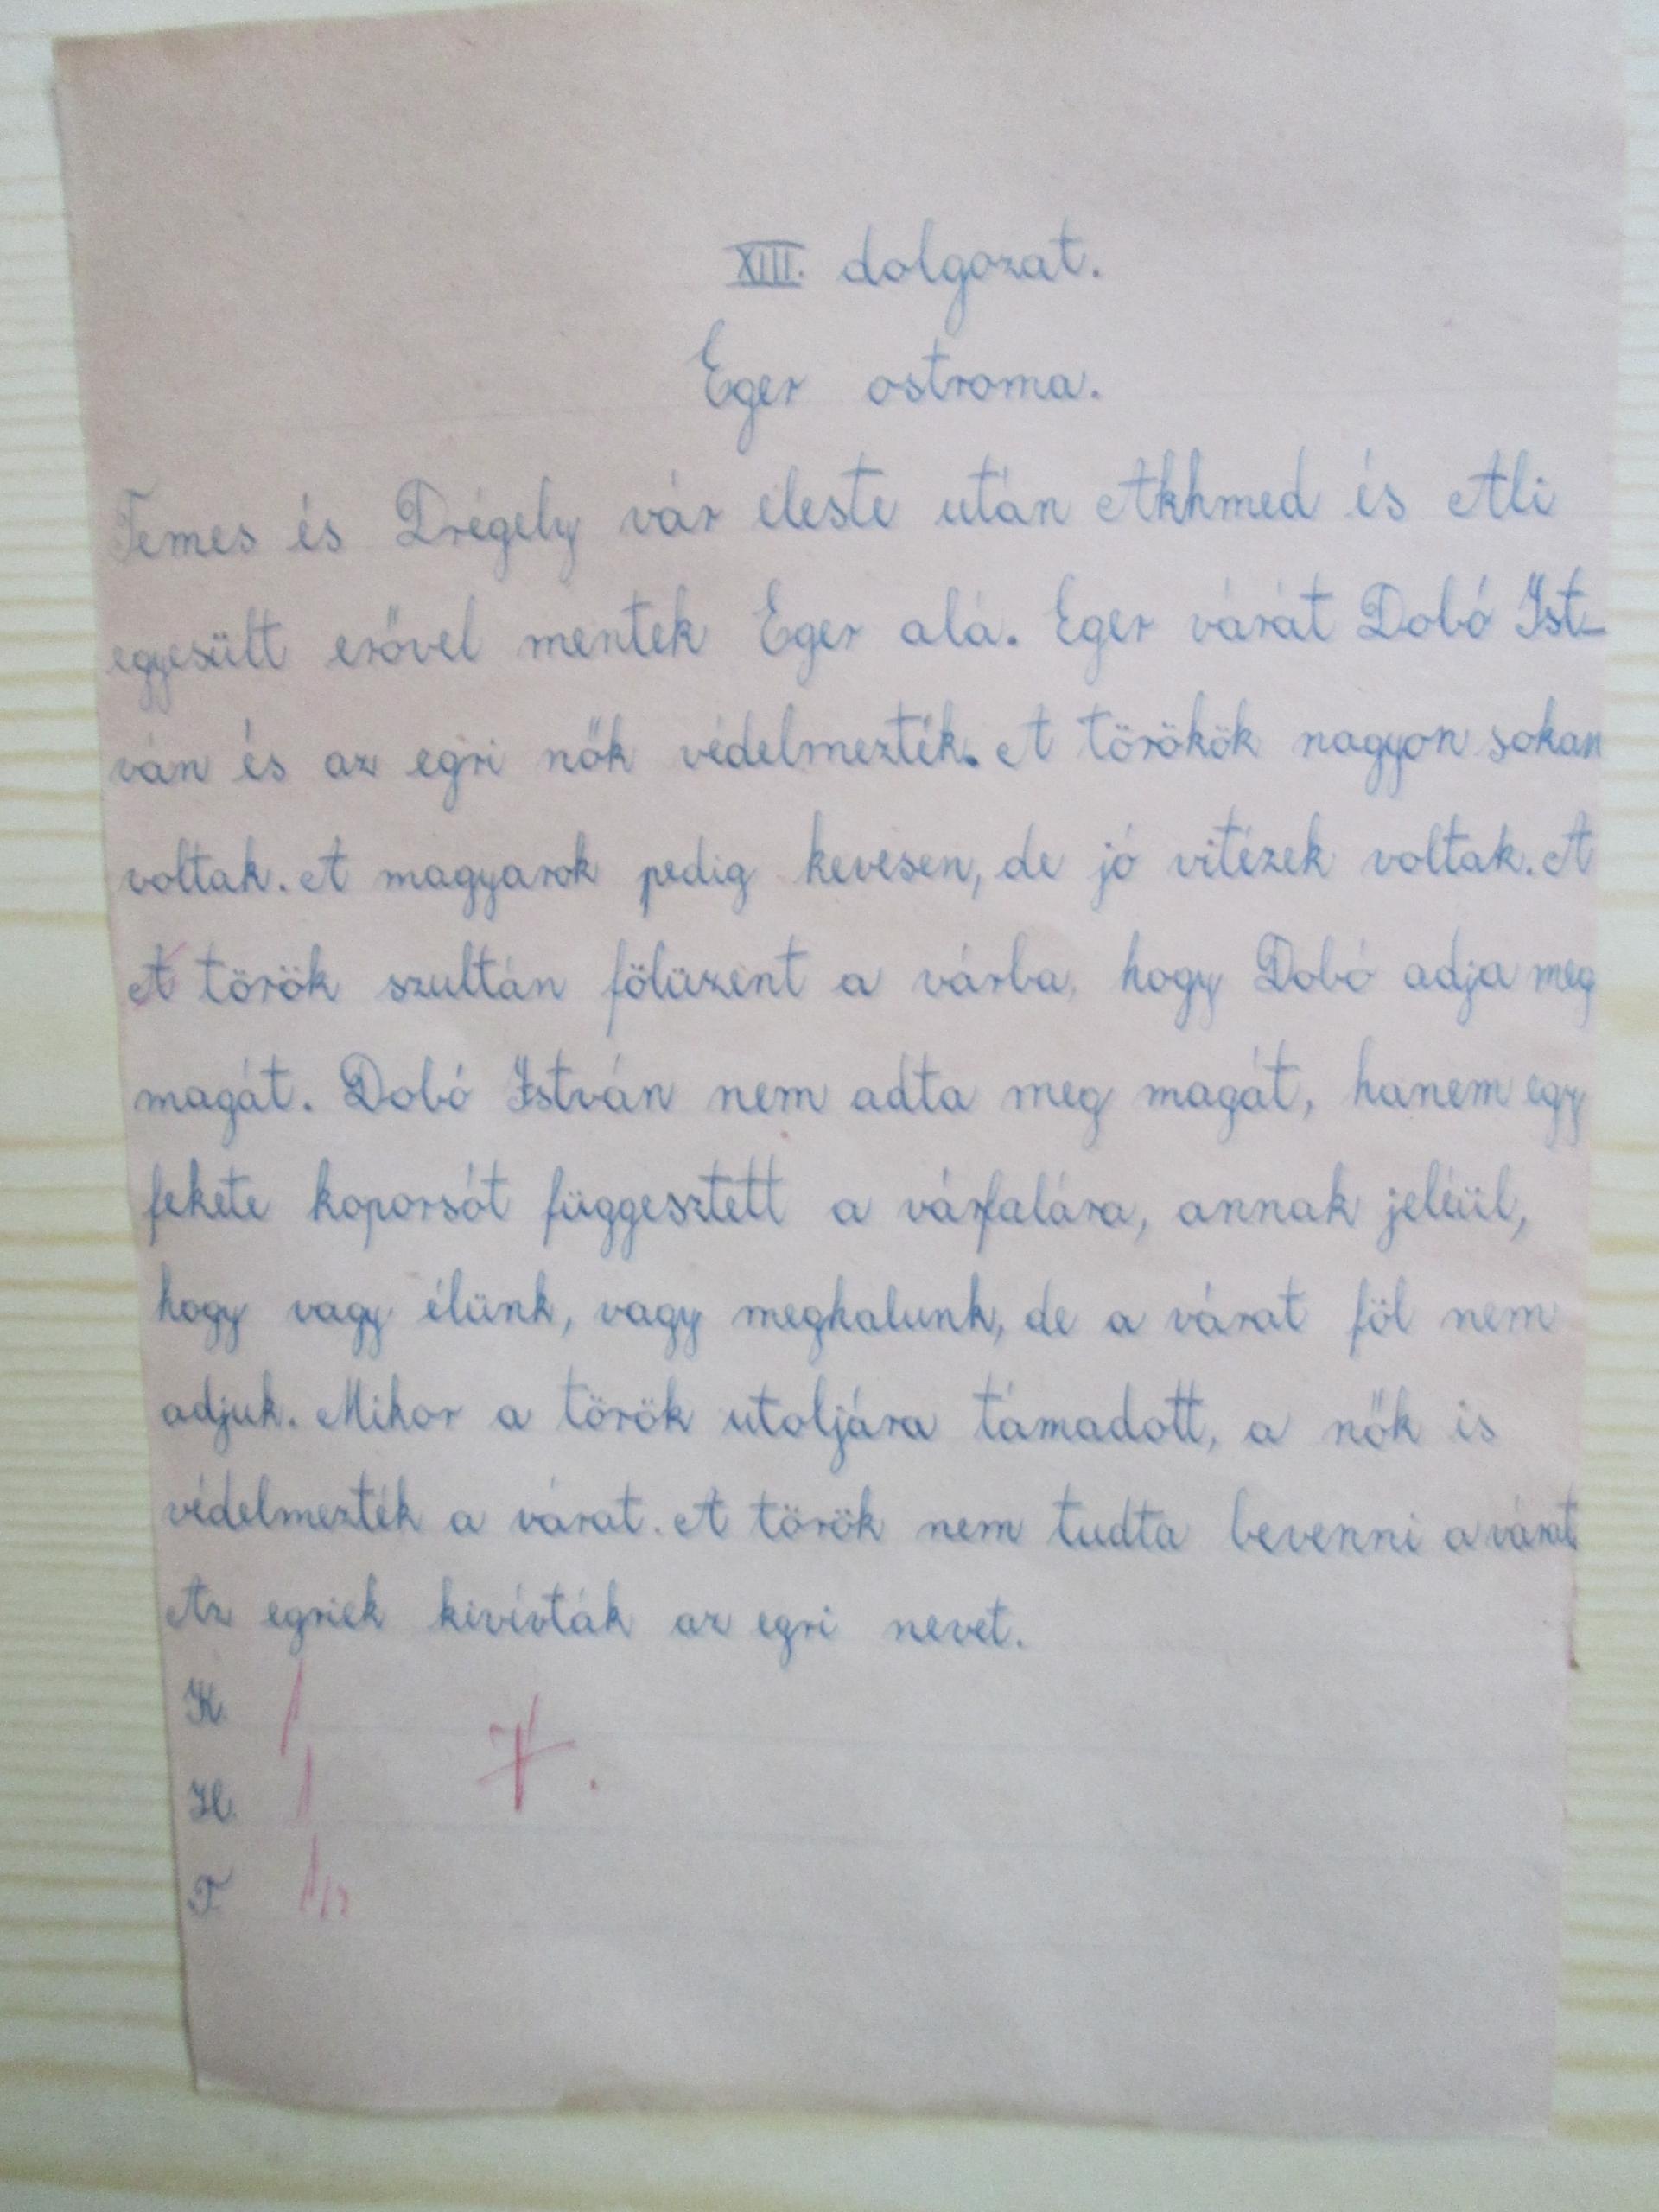 XIII. dolgozat.
Eger ostroma.
Temes és Drégely vár eleste után Akhmed és Ali
egyesült erővel mentek Eger alá. Eger várát Dobó Ist-
ván és az egri nők védelmezték. A törökök nagyon sokan
voltak. A magyarok pedig kevesen, de jó vitézek voltak. A
A török szultán fölüzent a várba, hogy Dobó adja meg
magát. Dobó István nem adta meg magát, hanem egy
fekete koporsót függesztett a várfalára, annak jeléül,
hogy vagy élünk, vagy meghalunk, de a várat föl nem
adjuk. Mikor a török utoljára támadott, a nők is
védelmezték a várat. A török nem tudta bevenni a várat.
Az egriek kivívták az egri nevet.
K. 1
H. 1
T.